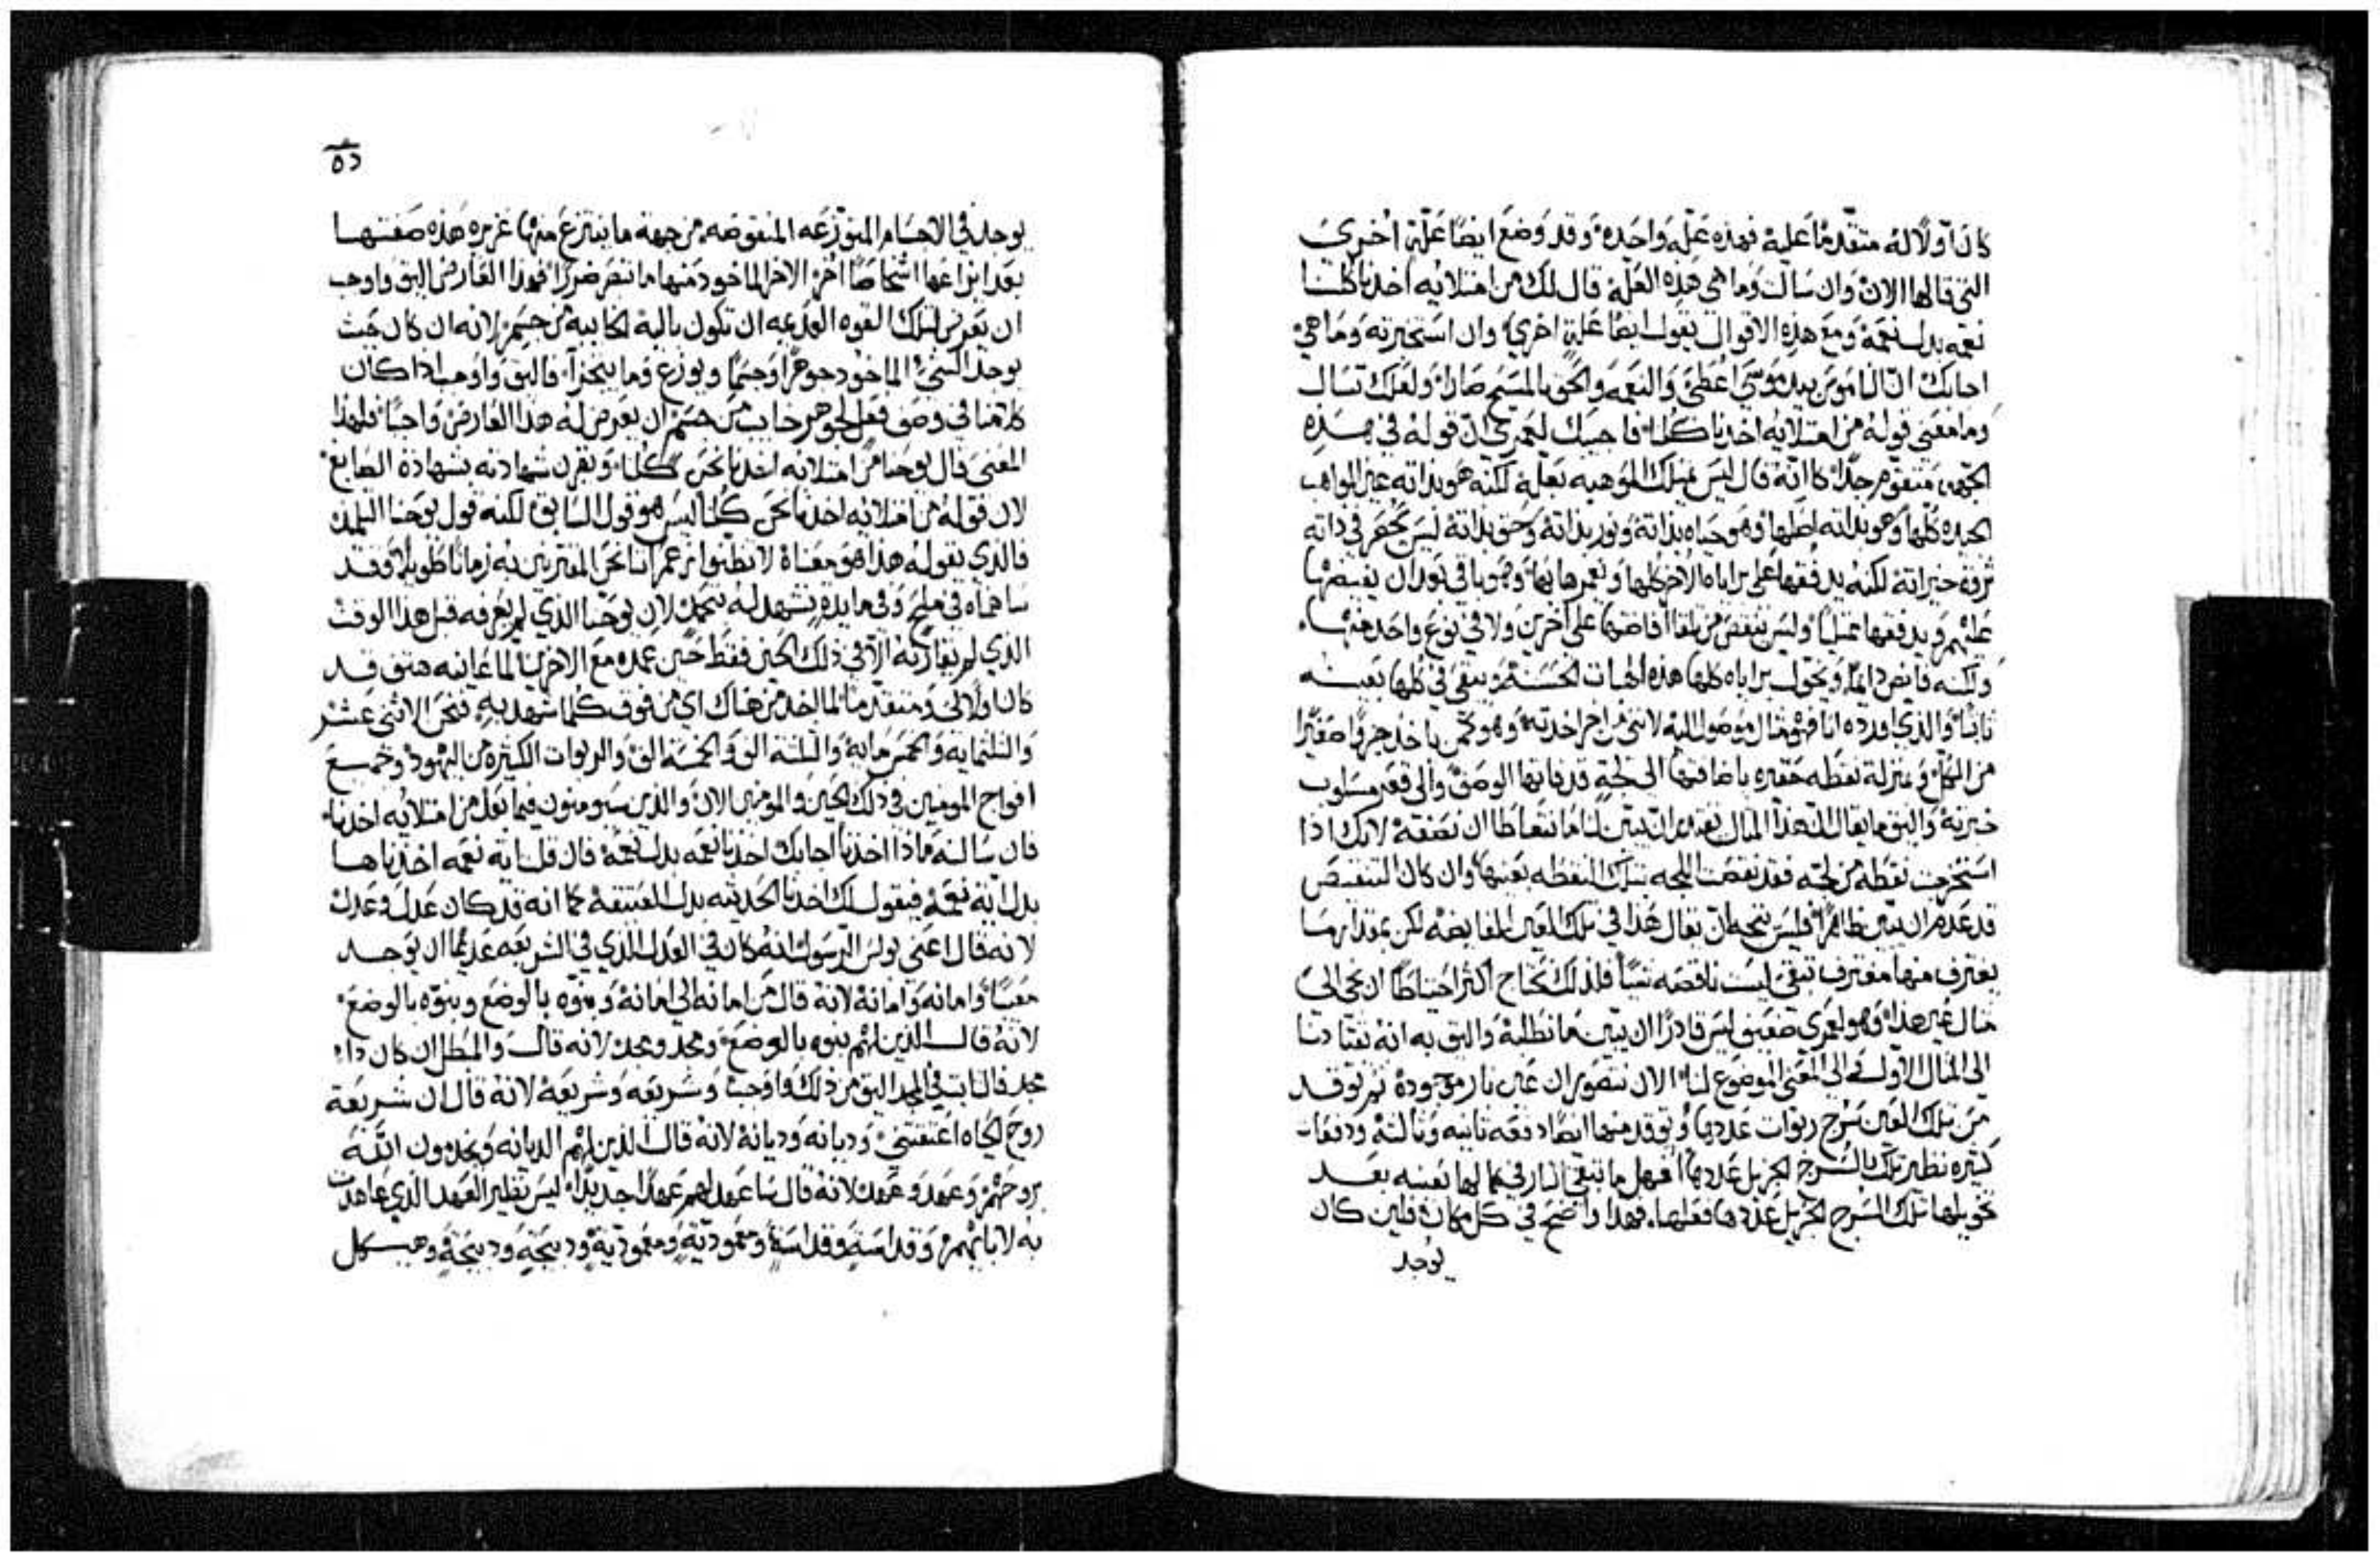 كان اولًا له متقدمًا عليه فهذه علّه واحده وقد وضع ايضًا علّة اخري
التي قالها الان وان سالت وما هي هذه العلّة قال لك من امتلايه اخذنا كلنا
نعمه بدل نعمة ومع هذه الاقوال يقول ايضًا علة اخري وان استخبرته وما هي
اجابك انّ الناموس بيد موسي اعطي والنعمه والحق بالمسيح صارا ولعلك تسال
وما معني قوله من امتلايه اخذنا كلنا فاجيبك لعمري انّ قوله في هذه
الجهه متقوم جدًا كانه قال ليس يمتلك الموهبه بعلة لكنه هو بذاته عين المواهب
الجيده كلها وهو بذاته اصلها وهو حياه بذاته ونور بذاته وحق بذاته ليس يحصر في ذاته
ثروة خيراته لكنه يدفقها علي براياه الاخر كلها ويغمرها بها وهو باقي بعد ان يفيضها
عليهم ويدفقها ممتليًا وليس ينقص من تلقا افاضتها علي اخرين ولا في نوع واحد منها
ولكنه فايض دايمًا ويخول براياه كلها هذه الهبات الحسنه ثم يبقي في كلها بعينه
ثابتًا والذي اورده انا فهو مثال موصول اليه لانني من اجزا خذته وهو كمن ياخذ جزوًا صغيرًا
من الكل وبمنزلة نقطه حقيره باضافتها الي لجة قد فاتها الوصف والي قعر مسلوب
خبرته واليق ما يقال ان هذا المثال يقدر ان يبين لنا ما نتعاطا ان نصفه لانك اذا
استخرجت نقطه من لجه فقد نقصت اللجه بتلك النقطه بعينها وان كان التنقيص
قد عدم ان يبين ظاهرًا فليس يتجه ان يقال هذا في تلك العين الفايضه لكن بمقدار ما
يغترف منها مغترف تبقي ليست ناقصه شيًا فلذلك نحتاج اكثر احتياطًا ان نجي الي
مثال غير هذا وهو لعمري ضعيف ليس قادرًا ان يبين ما نطلبه واليق به انه يقتادنا
الي المثال الاول في الي المعني الموضوع لنا الان نتصور ان عين نار موجودة ثم توقد
من تلك العين سرج ربوات عددها وتوقد منها ايضًا دفعه ثانيه وثالثه ودفعات
كثيره نظير تلك السرج الجزيل عددها افهل ما تبقي النار في كمالها بعينه بعد
تخويلها تلك السرج الجزيل عددها فعلها فهذا واضح في كل مكان فلين كان
يوجد
يوجد في الاجسام المتوزعه المنقوصه من جهة ما ينتزع منها غزيره هذه صفتها
بعد انتزاعها اشخاصًا اخر الاخر الماخوذ منها ما تنضر ضررًا فهذا العارض اليق واوجب
ان يعرض لتلك القوه العديمه ان تكون باليه الخايبه من جسم لانه ان كان حيث
يوجد الشي الماخوذ جوهرًا وجسمًا ويوزع وما يتجزا فاليق واوجب اذا كان
كلامنا في وصف فعل لجوهر خايب من جسم ان يعرض له هذا العارض واجبًا فلهذا
المعني قال يوحنا من امتلايه اخذنا نحن كلنا ويقرن شهادته بشهادة الصابغ
لان قوله من امتلايه اخذنا نحن كلنا ليس هو قول السابق لكنه قول يوحنا التلميذ
فالذي يقوله هذا هو معناه لا تظنوا بزعم اننا نحن المقترنين به زمانًا طويلًا وقد
ساهمناه في ملح وفي مايده نشهد له بتجمل لان يوحنا الذي لم يعرفه قبل هذا الوقت
الذي لم يقارنه الا في ذلك الحين فقط حين عمده مع الاخرين لما عاينه هتف قد
كان اولًا لي ومتقدمًا لما اخذ من هناك اي من فوق كلما شهد به فنحن الاثني عشر
والثلثمايه والخمس مايه والثلثه الف والخمسه الف والربوات الكثيره من اليهود وجميع
افواج المومنين في ذلك الحين والمومنين الان والذين سيومنون فيما بعد من امتلايه اخذنا
فان سالته ماذا اخذنا اجابك اخذنا نعمه بدل نعمة فان قلت اية نعمه اخذناها
بدل اية نعمه فيقول لك اخذنا الحديثه بدل العتيقة كما انه قد كان عدل وعدل
لانه قال اعني بولس الرسول انه كان في العدل الذي في الشريعه عديمًا ان يوجد
معيبًا وامانه وامانة لانه قال من امانه الي امانة وبنوه بالوضع وبنوه بالوضع
لانه قال الذين لهم بنوه بالوضع ومجد ومجد لانه قال والمبطل ان كان ذا
مجد فالثابت في المجد اليق من ذلك واوجب وشريعه وشريعة لانه قال ان شريعة
روح الحياه اعتقتني وديانه وديانة لانه قال الذين لهم الديانه ويخدمون الله
بروحهم وعهد وعهد لانه قال ساعهد لهم عهدًا جديدًا ليس نظير العهد الذي عاهدت
به لابايهم وقداسةٍ وقداسةٍ ومعموديةٍ ومعموديةٍ وذبيحةٍ وذبيحةٍ وهيكل